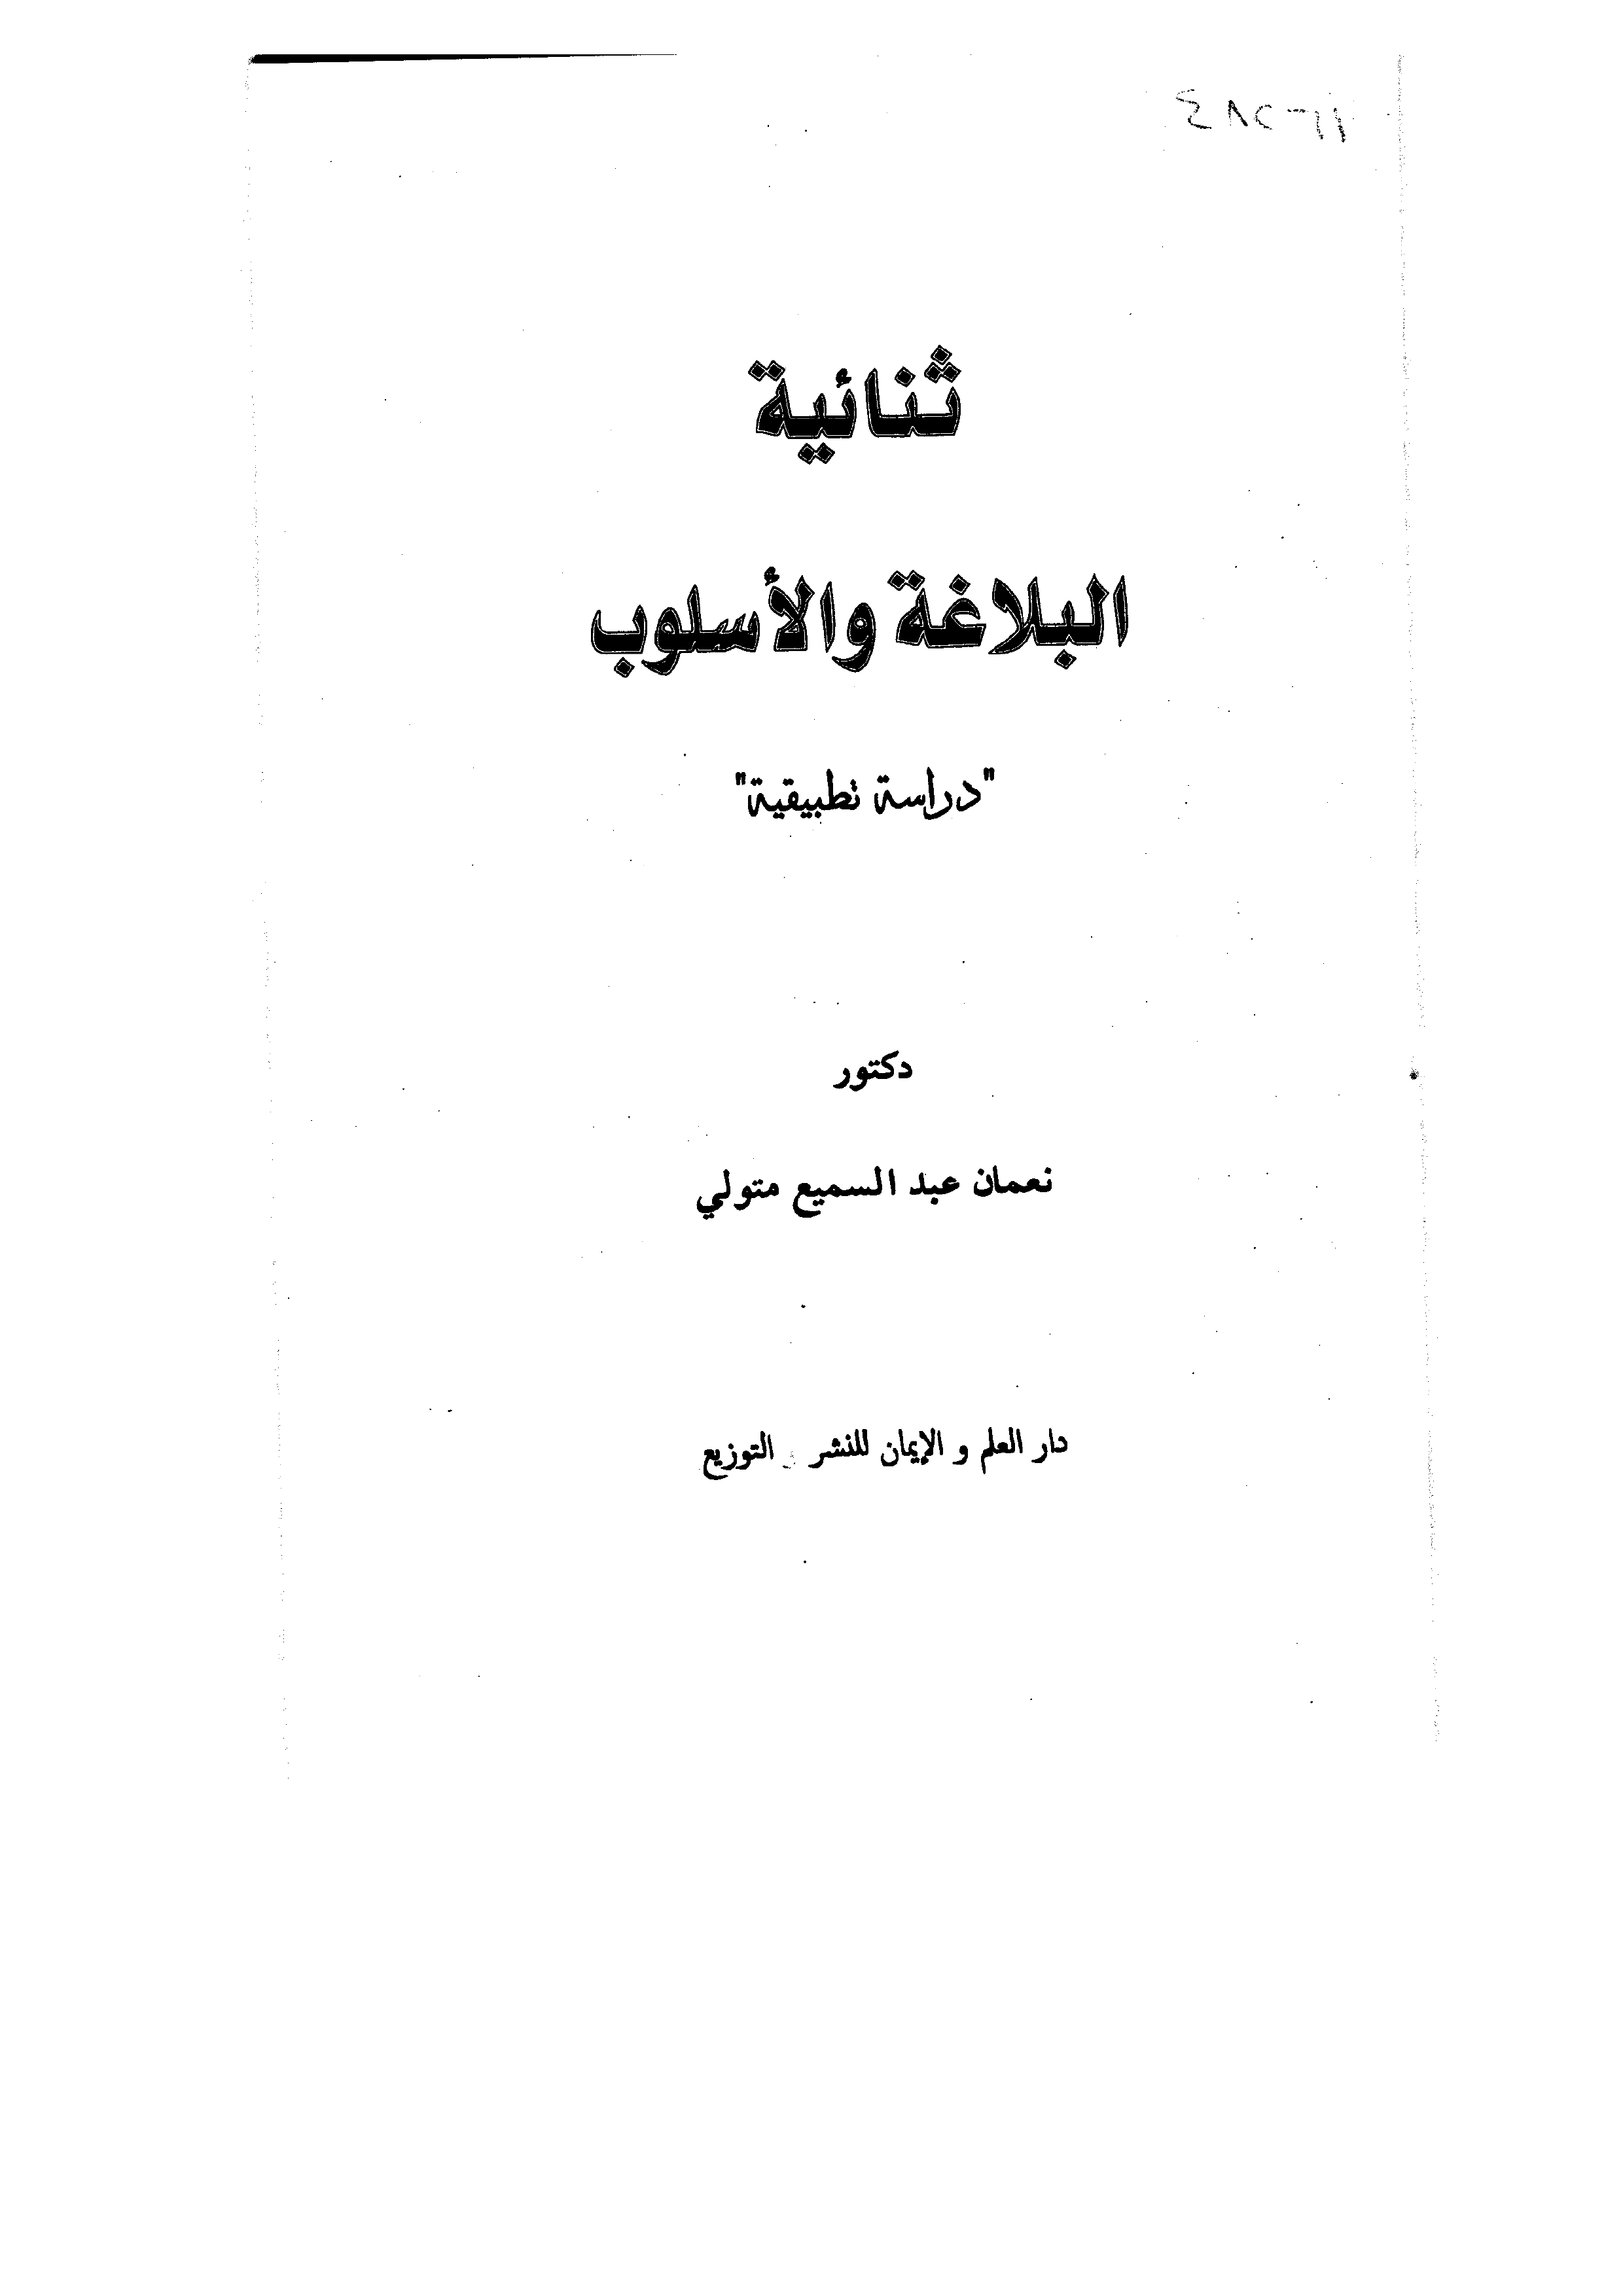 ثنائية
البلاغة والأسلوب
"دراسة تطبيقية"
دكتور
نعمان عبد السميع متولي
دار العلم و الإيمان للنشر و التوزيع